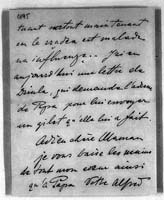 1095
tenant
maintenant
et
est malade
influenza. J'ai eu
aujourd'hui une lettre de
qui demande l'adresse
de Papa pour lui envoyer
un gilet qu'elle lui a fait.
Adieu chère Maman
je vous baise les mains
de tout mon cœur ainsi
qu'à Papa Votre Alfred